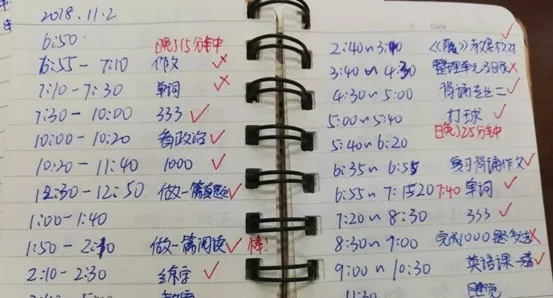 2018.11.2
6:50. 晚了15分钟
6:55-7:10 作文 ×
7:10-7:30 单词 ×
7:30-10:00 333 ✓
10:00-10:20 看政治 ✓
10:20-11:40 1000 ✓
12:30-12:50 做一篇真题 ✓
1:00-1:40
1:50-2:10 做一篇阅读 ✓ 棒!
2:10-2:30 练字 ✓
Date
2:40~3:40
3:40~4:30 整理单元
4:30~5:00 背诵 ✓
5:00~5:40 打球 ✓
晚了25分钟
5:40~6:20
6:35~6:55 复习背诵作文 ✓
6:55~7:15 20 7:40 单词 ✓
7:20~8:30 333 ✓
8:30~9:00 完成1000题 ×
9:00~10:30 英语课一 ✓
11:30 睡觉